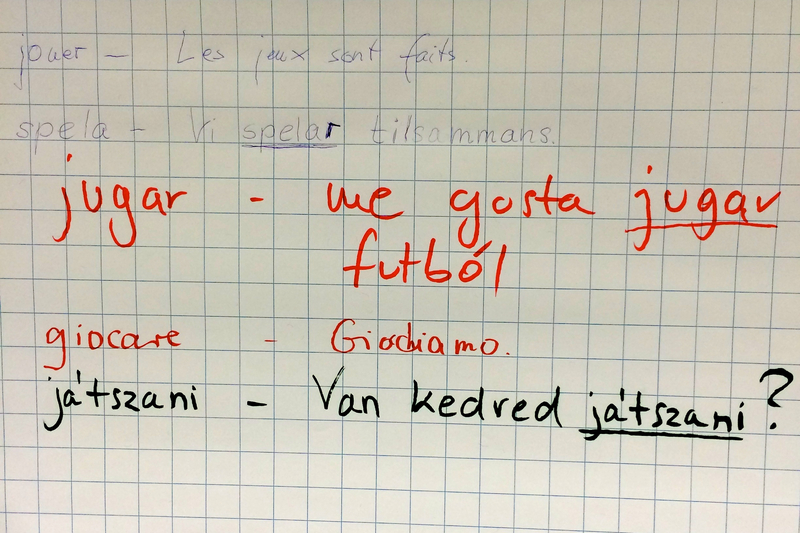 jouer - Les jeux sont faits.
spela - Vi spelar tilsammans.
jugar - me gosta jugar
futból
giocare - Giochiamo.
játszani - Van kedved játszani?